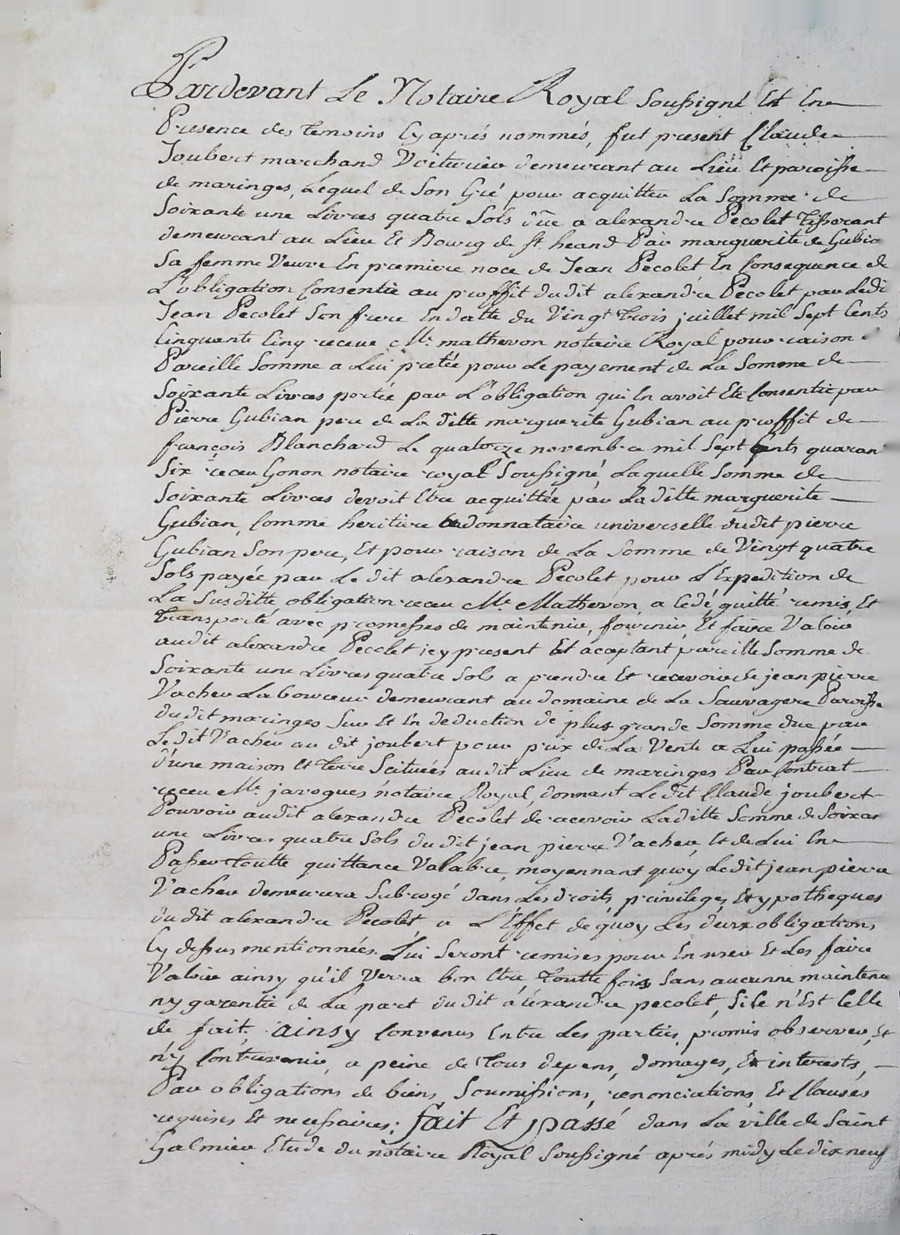 Pardevant Le Notaire Royal Soussigné Et En
Presence des temoins Cy aprés nommés, fut present Claude
Joubert marchand Voiturier demeurant au Lieu Et paroisse
de maringes, Lequel de Son Gré pour acquitter La Somme de
Soixante une Livres quatre Sols düe a alexandre Pecolet tisserant
demeurant au Lieu Et Bourg de st heand Par marguerite Gubian
Sa femme Veuve En premiere noce de Jean Pecolet En Consequence de
L'obligation Consentie au proffit dudit alexandre Pecolet par Ledi
Jean Pecolet Son frere En datte du Vingt trois juillet mil Sept Cents
Cinquante Cinq receue Me mathevon notaire Royal pour raison
Pareille Somme a Lui pretée pour Le payement de La Somme de
Soixante Livres portée par L'obligation qui En avoit Eté Consentie par
Pierre Gubian pere de La ditte marguerite Gubian au proffit de
françois Blanchard Le quatorze novembre mil Sept Cents quaran
Six receu Gonon notaire royal Soussigné, Laquelle Somme de
Soixante Livres devoit Etre acquittée par Laditte marguerite
Gubian, Comme heritiere donnataire universelle dudit pierre
Gubian Son pere, Et pour raison de La Somme de Vingt quatre
Sols payée par Le dit alexandre Pecolet pour L'Expedition de
La Susditte obligation receu Me Mathevon, a Cedé quitté remis, Et
transporté avec promesses de maintenir, fournir, Et faire Valoir
audit alexandre Pecolet icy present Et aceptant pareille Somme de
Soixante une Livres quatre Sols a prendre Et recevoir de jean pierre
Vacher Laboureur demeurant au domaine de La Sauvagere Paroisse
dudit maringes Sur Et En deduction de plus grande Somme due par
Ledit Vacher au dit joubert pour prix de La Vente a Lui passée
d'une maison Et terre Scituées audit Lieu de maringes Par Contrat
receu Me javogues notaire Royal, donnant Ledit Claude joubert
Pouvoir audit alexandre Pecolet de recevoir Laditte Somme de Soixan
une Livres quatre Sols du dit jean pierre Vacher, Et de Lui En
Passer toutte quittance Valable, moyennant quoy Ledit jean pierre
Vacher demeurera Subrogé dans Les droits privileges Et ypotheques
du dit alexandre Pecolet, a L'Effet de quoy Les deux obligations
Cy dessus mentionnées Lui Seront remises pour En user Et Les faire
Valoir ainsy qu'il Verra bon Etre, toutte fois Sans aucunne maintenu
ny garentie de La part dudit alexandre pecolet, Si Ce n'Est Celle
de fait, ainsy Convenus Entre Les parties, promis observer, Et
n'y Contrevenir, a peine de tous depens, domages, Et interests,
Par obligations de biens, Soumissions, renonciations, Et Clauses
requises Et necessaires; fait Et passé dans La ville de Saint
Galmier Etude du notaire Royal Soussigné aprés midy Le dix neuf